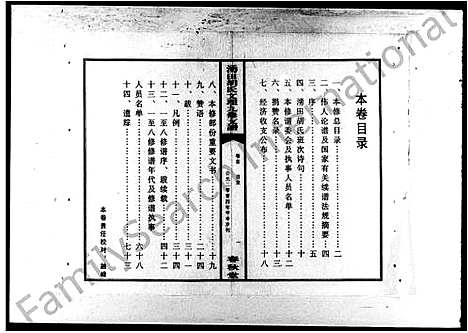 本卷目录
一、本修总目录 二
二、伟人论谱及国家有关续谱法规摘要 四
三、序 五
四、湾田胡氏班次诗句 十一
五、本修谱委会及执事人员名单 十二
六、捐赞名录 十六
七、经济收支公布 十八
湾田胡氏文理九修支谱
卷首 目录
春秋堂
八、本修部份重要文书 十九
九、赞语 二十四
十、跋 三十
十一、凡例 三十四
十二、一至八修谱序、跋续载 四十二
十三、一至八修修谱年代及修谱执事
人员名单 六十八
十四、遗踪 七十三
本卷责任校对
FamilySearch International